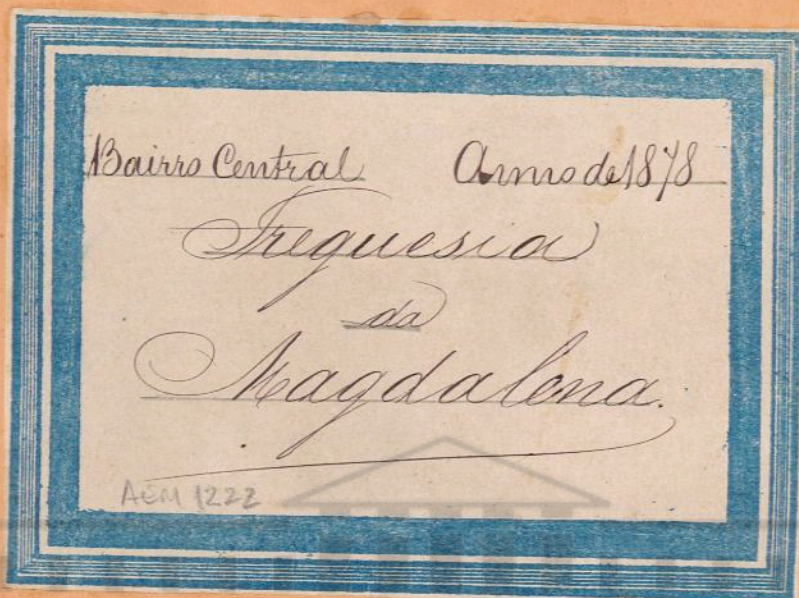 Bairro Central Anno de 1878
Freguesia
da
Magdalena.
AEM 1222